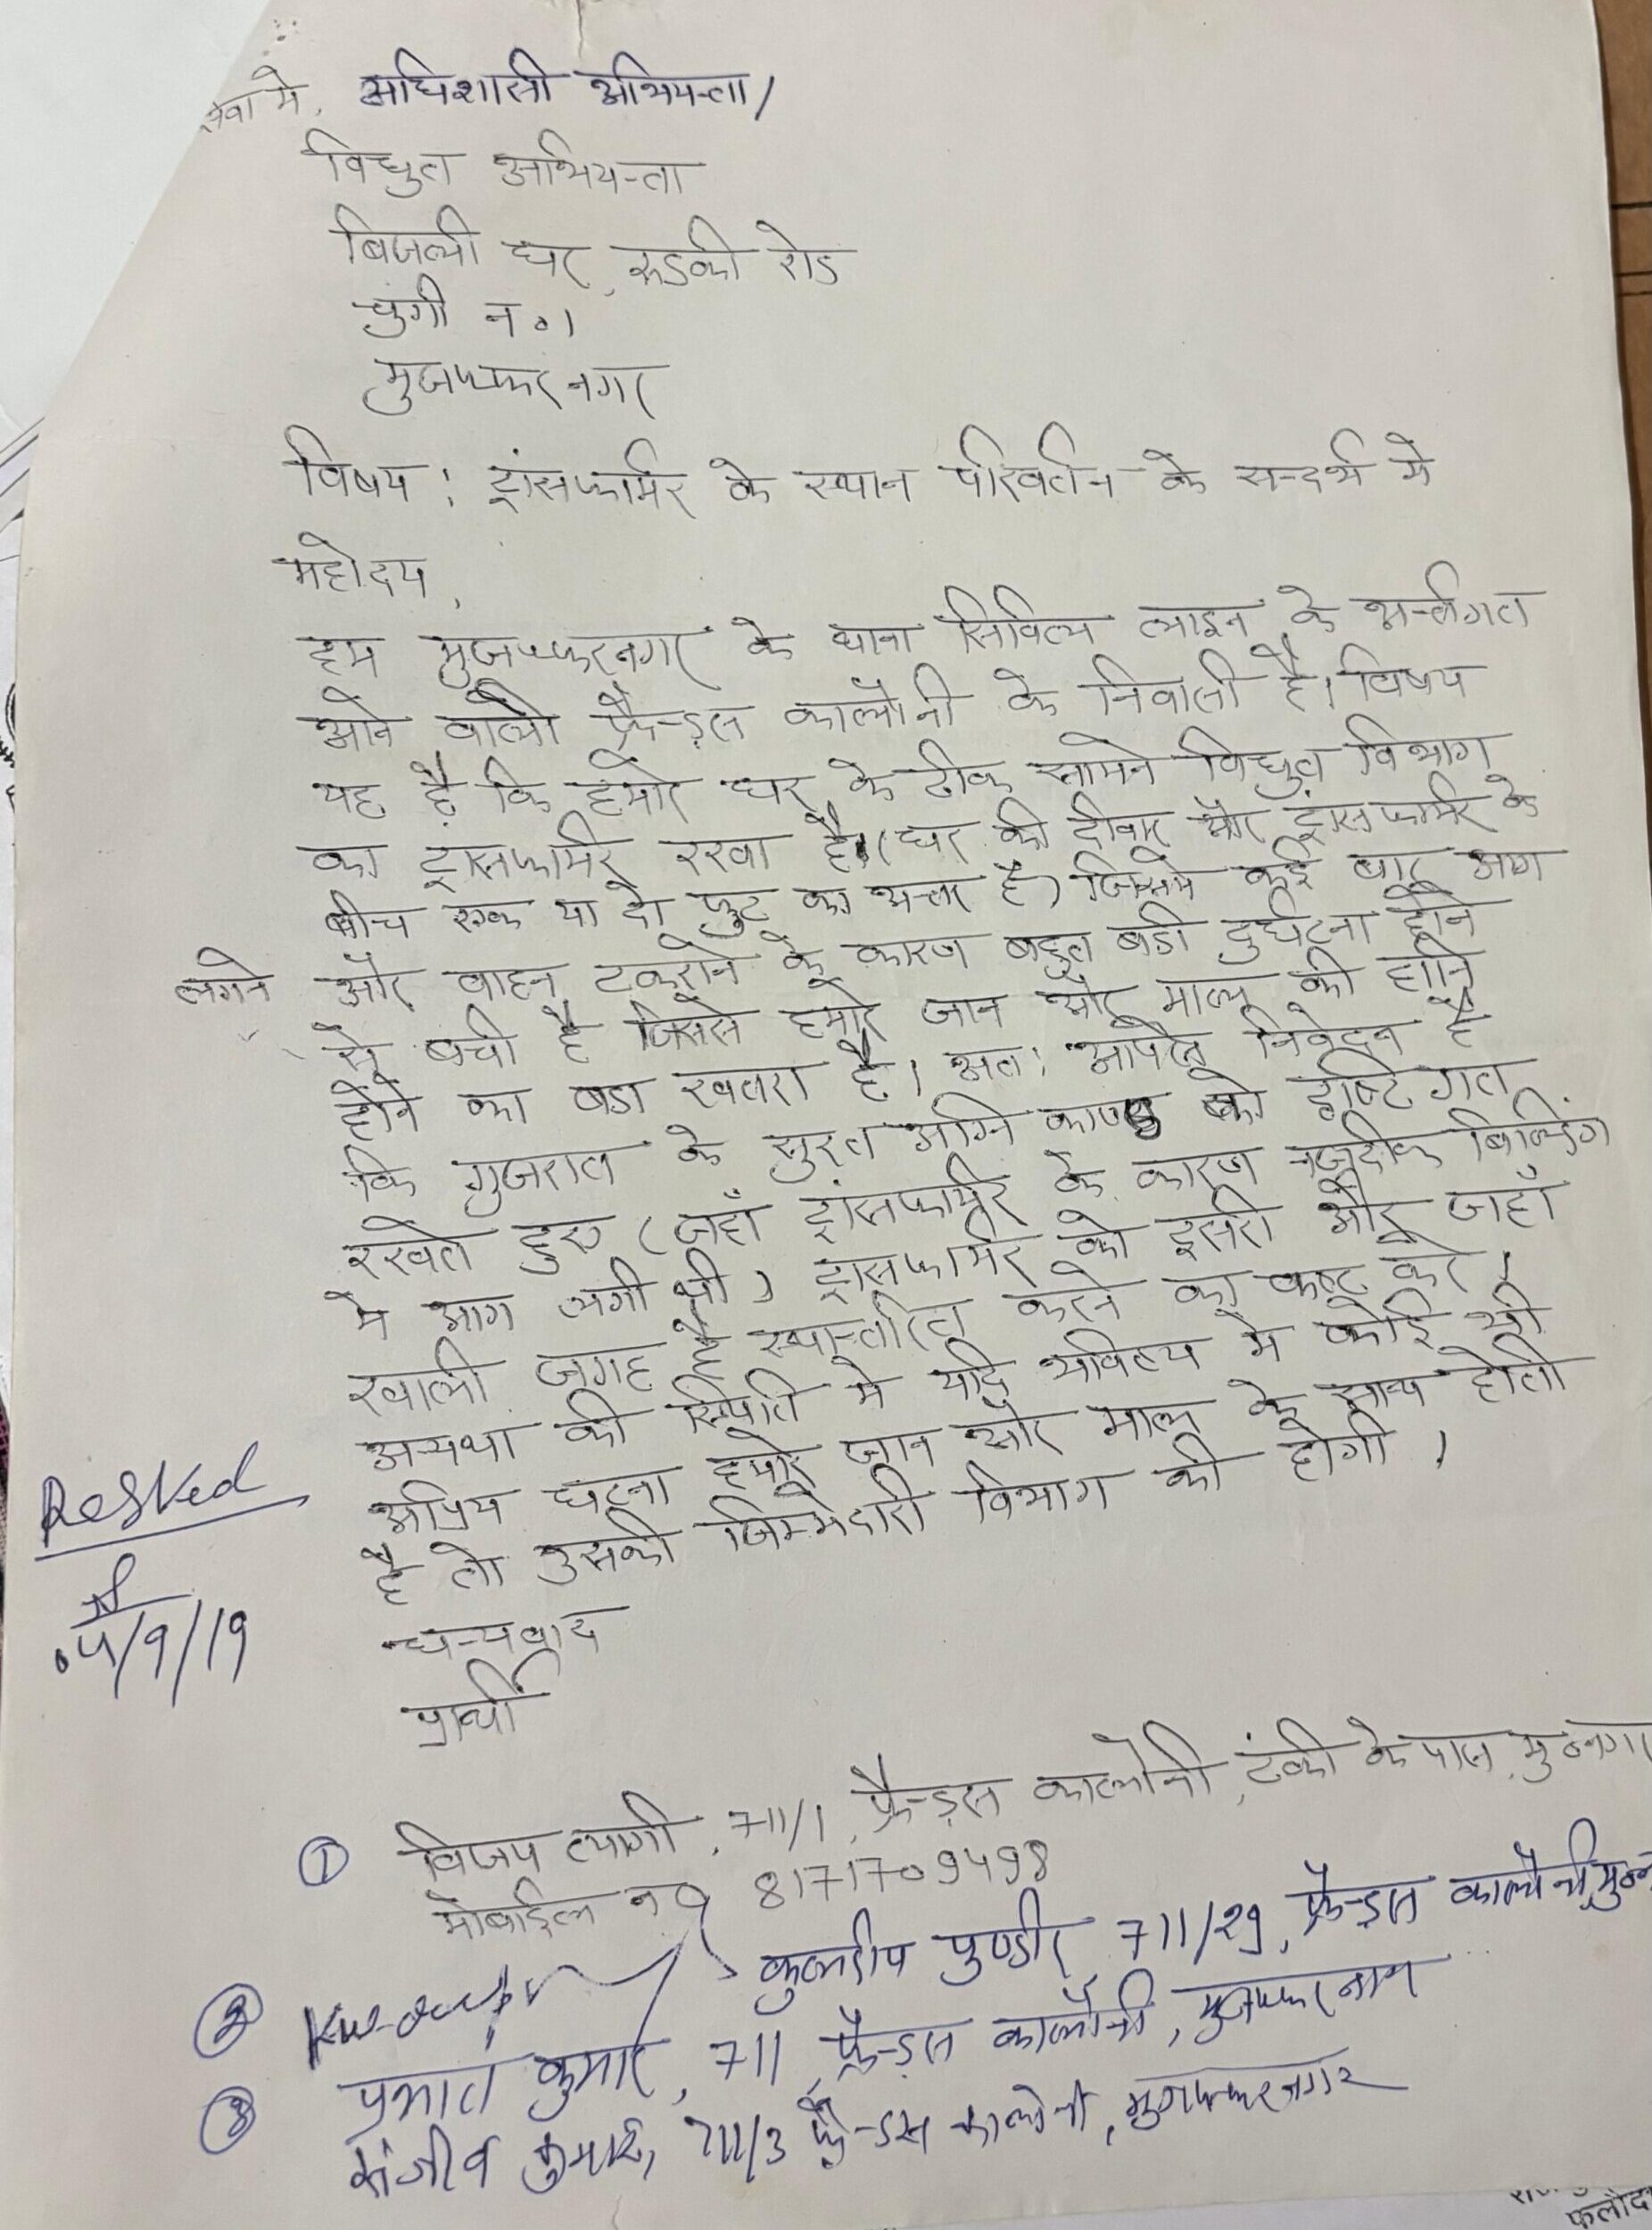 सेवा में, अधिशासी अभियन्ता/
विधुत अभियन्ता
बिजली घर, रूडकी रोड
चुंगी न०1
मुजफ्फरनगर
विषय : ट्रांसफार्मर के स्थान परिवर्तन के सन्दर्भ मे
महोदय,
हम मुजफ्फरनगर के थाना सिविल लाइन के अन्तर्गत
आने वाली फ्रैन्ड्स कालोनी के निवासी है। विषय
यह है कि हमारे घर के ठीक सामने विधुत विभाग
का ट्रासफार्मर रखा है। (घर की दीवार और ट्रांसफार्मर के
बीच एक या दो फुट का अन्तर है) जिसमे कई बार आग
लगने और वाहन टकराने के कारण बहुत बडी दुर्घटना होने
से बची है जिससे हमारे जान और माल की हानि
होने का बडा खतरा है। अतः आपसे निवेदन है
कि गुजरात के सुरत अग्नि काण्ड को दृष्टिगत
रखते हुए (जहाँ ट्रांसफार्मर के कारण नजदीक बिल्डिंग
मे आग लगी थी) ट्रासफार्मर को दूसरी और जहाँ
खाली जगह है स्थान्तरित करने का कष्ट करे।
अन्यथा की स्थिति मे यदि भविष्य मे कोई भी
अप्रिय घटना हमारे जान और माल के साथ होती
है तो उसकी जिम्मेदारी विभाग की होगी।
धन्यवाद
प्रार्थी
Resved
04/9/19
① विजय त्यागी, 711/1, फ्रैन्ड्स कालोनी, टंकी के पास, मु०नगर
मोबाईल न० 8171709498
② कुलदीप पुण्डीर 711/29, फ्रैन्ड्स कालोनी, मु०न
③ प्रभात कुमार, 711 फ्रैन्ड्स कालोनी, मुजफ्फरनगर
संजीव कुमार, 711/3 फ्रैन्डस कालोनी, मुजफ्फरनगर